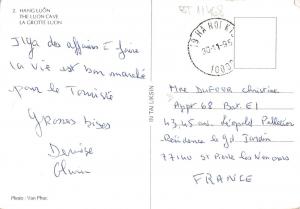 2. HANG LUỒN
THE LUON CAVE
LA GROTTE LUON
Il y a des affaires à faire
la vie est bon marché
pour le Touriste
Grosses bises
Denise
Photo : Van Phuc
IN TẠI LIKSIN
HA NOI
20-11-95
Mme DUFOUR Christine
Appt 68 Bat. E1
43,45 av. Léopold Pelletier
Résidence le gd Jardin
77140 St Pierre les Nemours
FRANCE